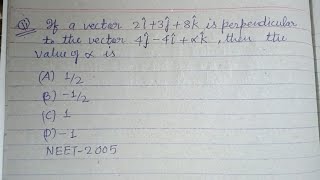 Q If a vector 2î+3ĵ+8k̂ is perpendicular
to the vector 4ĵ-4î+αk̂, then the
value of α is
(A) 1/2
(B) -1/2
(C) 1
(D) -1
NEET-2005